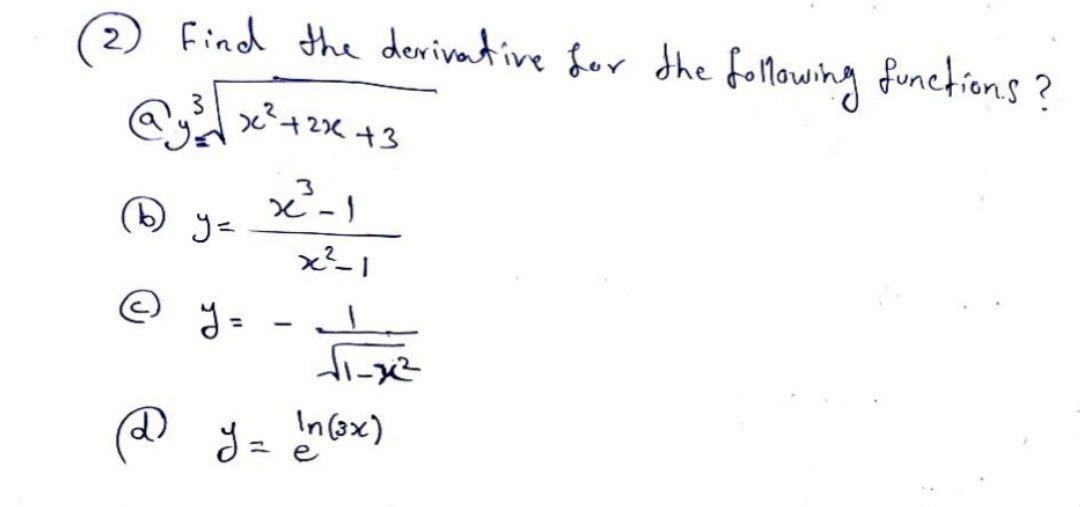 (2) Find the derivative for the following functions?
(a) y = ∛(x²+2x+3)
(b) y = (x³-1)/(x²-1)
(c) y = - 1/√(1-x²)
(d) y = e^ln(3x)